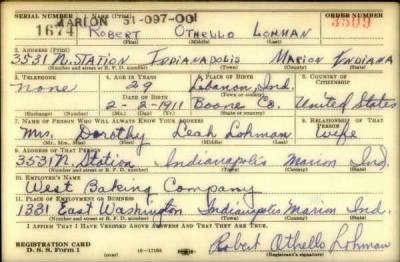 SERIAL NUMBER 1. NAME (Print) ORDER NUMBER
MARION 31-097-001
1674 ROBERT OTHELLO LOHMAN 3509
2. ADDRESS (Print)
3531 N. STATION INDIANAPOLIS MARION INDIANA
(Number and street or R. F. D. number) (Town) (County) (State)
3. TELEPHONE 4. AGE IN YEARS 5. PLACE OF BIRTH 6. COUNTRY OF CITIZENSHIP
None 29 Lebanon, Ind.
DATE OF BIRTH
2-2-1911 Boone Co. United States
7. NAME OF PERSON WHO WILL ALWAYS KNOW YOUR ADDRESS 8. RELATIONSHIP OF THAT PERSON
Mrs. Dorothy Leah Lohman Wife
(Mr., Mrs., Miss) (First) (Middle) (Last)
9. ADDRESS OF THAT PERSON
3531 N. Station Indianapolis Marion Ind.
(Number and street or R. F. D. number) (Town) (County) (State)
10. EMPLOYER'S NAME
West Baking Company
11. PLACE OF EMPLOYMENT OR BUSINESS
1331 East Washington Indianapolis Marion Ind.
(Number and street or R. F. D. number) (Town) (County) (State)
I AFFIRM THAT I HAVE VERIFIED ABOVE ANSWERS AND THAT THEY ARE TRUE.
REGISTRATION CARD
D. S. S. Form 1 (over) 16-17105 Robert Othello Lohman
(Registrant's signature)